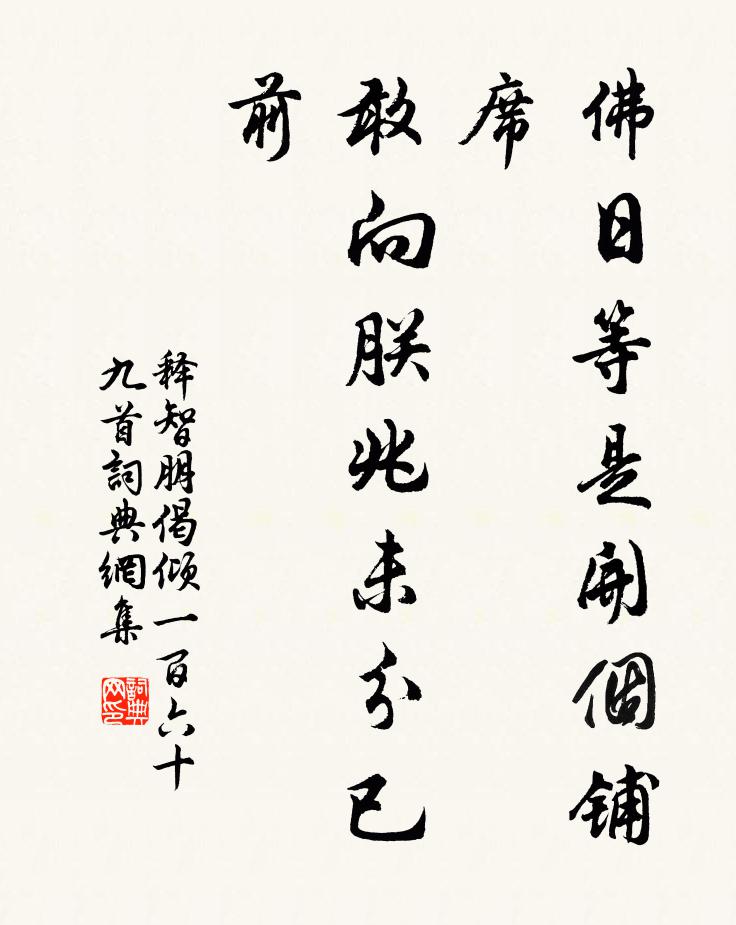 佛日等是開個鋪
席
敢向朕兆未分已
前
释智朋偈倾一百六十
九首詞典網集
詞典
网印